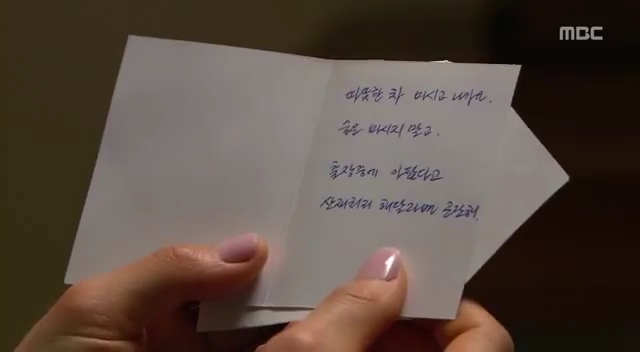 MBC
따뜻한 차 마시고 나가요.
술은 마시지 말고.
출장중에 아팠다고
산재처리 해달라면 곤란해.